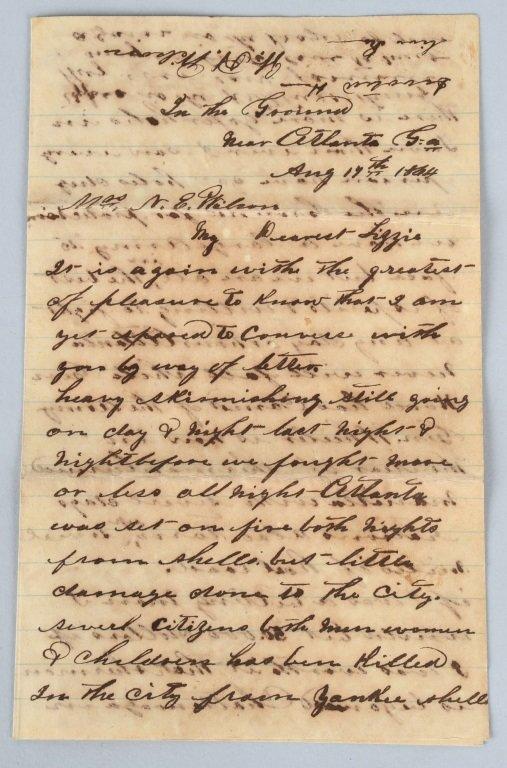 In the Ground
Near Atlanta Ga
Aug 19th 1864
Mrs. N. E. Wilson
My Dearest Lizzie
It is again with the greatest
of pleasure to Know that I am
yet spared to Converse with
you by way of letter
heavy skirmishing still going
on day & Night last Night &
Night before we fought more
or less all Night Atlanta
was set on fire both Nights
from shells. but little
damage done to the City.
severl Citizens both Men women
& children has ben Killed
In the City from Yankee shells